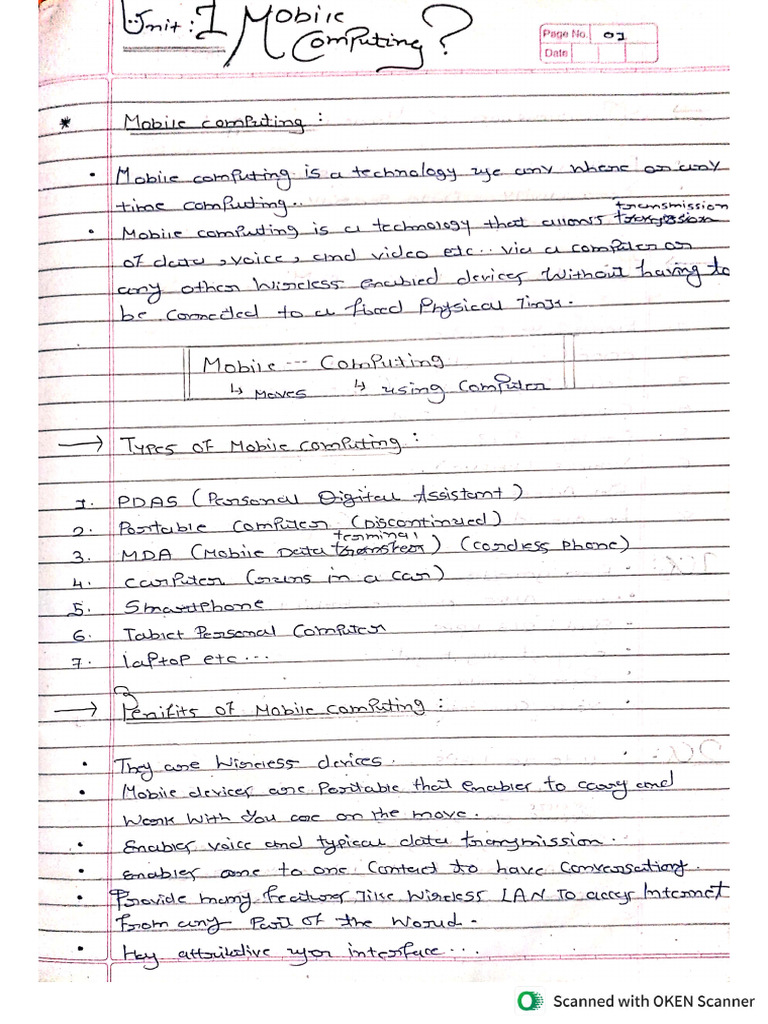 Unit: 1 Mobile Computing?
Page No. 01
Date
* Mobile computing :
• Mobile computing is a technology use any where or any
time computing..
• Mobile computing is a technology that allows transmission
of data, voice, and video etc.. via a computer or
any other wireless enabled devices without having to
be connected to a fixed Physical
Mobile --- Computing
↳ Moves ↳ using Computer
→ Types of Mobile computing :
1. PDAS (Personal Digital Assistant)
2. Portable computer (Discontinued)
3. MDA (Mobile Data terminal) (cordless phone)
4. carputer (runs in a car)
5. Smartphone
6. Tablet Personal Computer
7. laptop etc...
→ Benifits of Mobile computing :
• They are Wireless devices.
• Mobile devices are Portable that enables to carry and
work with you are on the move.
• Enables voice and typical data transmission.
• enables one to one Contact to have Conversations.
• Provide many features like Wireless LAN to access Internet
from any Part of the World.
• interface...
Scanned with OKEN Scanner